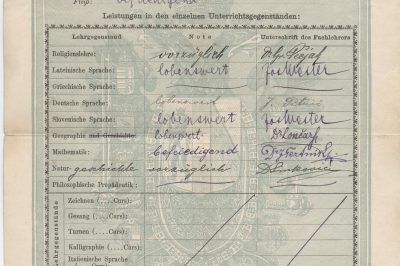 Leistungen in den einzelnen Unterrichtsgegenständen:
Lehrgegenstand Note Unterschrift des Fachlehrers
Religionslehre: vorzüglich
Lateinische Sprache: lobenswert Jos Wester
Griechische Sprache:
Deutsche Sprache: lobenswert
Slovenische Sprache: lobenswert Jos Wester
Geographie und Geschichte: lobenswert Dr Lončar
Mathematik: befriedigend
Naturgeschichte vorzüglich
Philosophische Propädeutik:
Lehrgegenstände
Zeichnen (....Curs):
Gesang (....Curs):
Turnen (....Curs):
Kalligraphie (....Curs):
Italienische Sprache